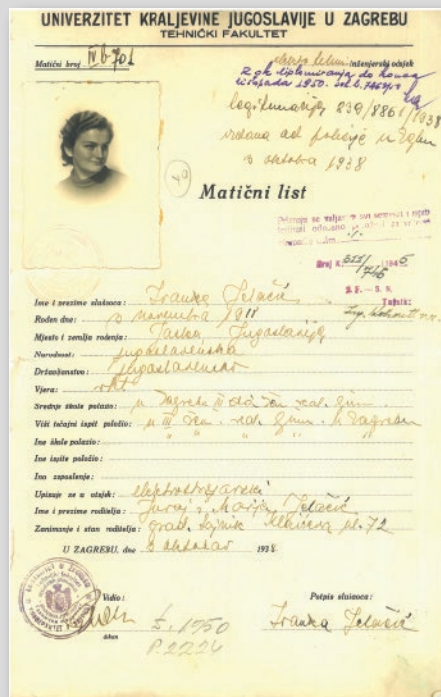 UNIVERZITET KRALJEVINE JUGOSLAVIJE U ZAGREBU
TEHNIČKI FAKULTET
Matični broj IV b. 701
inženjerski odsjek
Rok diplomiranja do konca
listopada 1950.
legitimacija 239/8861/1938
izdana od policije u Zgbu
3 oktobra 1938
40
Matični list
Broj K. 311/746 1945
Tajnik:
Ime i prezime slušaoca: Ivanka Jelačić
Rođen dne: 3 novembra
Mjesto i zemlja rođenja: Jaska Jugoslavija
Narodnost: jugoslavenska
Državljanstvo: jugoslavensko
Vjera: rkt
Srednje škole polazio: u Zagrebu III žen. real. gim
Viši tečajni ispit položio: u III žen. real. gimn. u Zagrebu
Ine škole polazio: " " " " "
Ine ispite položio:
Ino zaposlenje:
Upisuje se u otsjek: elektrostrojarski
Ime i prezime roditelja: Juraj i Marija Jelačić
Zanimanje i stan roditelja: grad. 72
U ZAGREBU, dne 3 oktobar 1938.
Vidio:
Potpis slušaoca:
dekan
I. 1950
P. 2224
Ivanka Jelačić